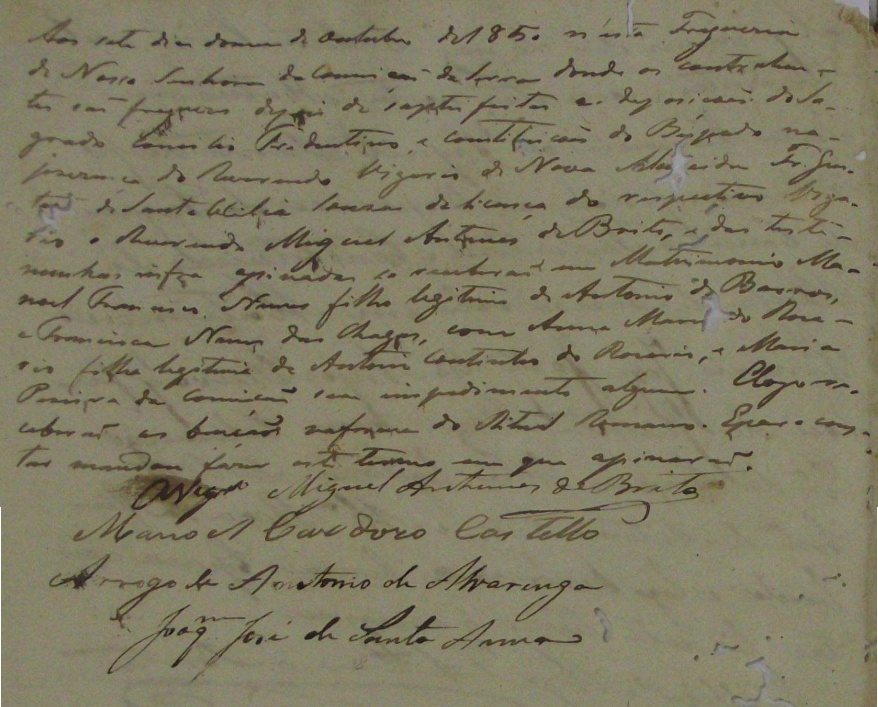 Aos sete dias do mes de outubro de 1850 n'esta Freguezia
de Nossa Senhora da Conceicaõ da Serra donde os contrahen-
tes saõ freguezes depois de feitas as disposicoens do Sa-
grado Concilio Tridentino, e constituicaõ do Bispado na-
prezença do Reverendo Vigario de Nova Almeida Fr.
de Santa Cecilia de licença do respectivo Viga-
rio o Reverendo Miguel Antunes de Brito, e das teste-
munhas infra asinadas se receberaõ em Matrimonio Ma-
noel Francisco Nunes filho legitimo de Antonio de Barros,
e Francisca Nunes das Chagas, com Anna Maria do Roza-
rio filha legitima de Antonio Coutinho do Rozario, e Maria
Pereira da Conceicaõ sem impedimento algum. E logo re-
ceberaõ as bençaõs na forma do Ritual Romano. E para cons-
tar mandou fazer este termo em que asinaraõ.
O Vigr.º Miguel Antunes de Brito
Manoel Cardozo Castello
Arrogo de Antonio de Alvarenga
Joaq.m José de Santa Anna